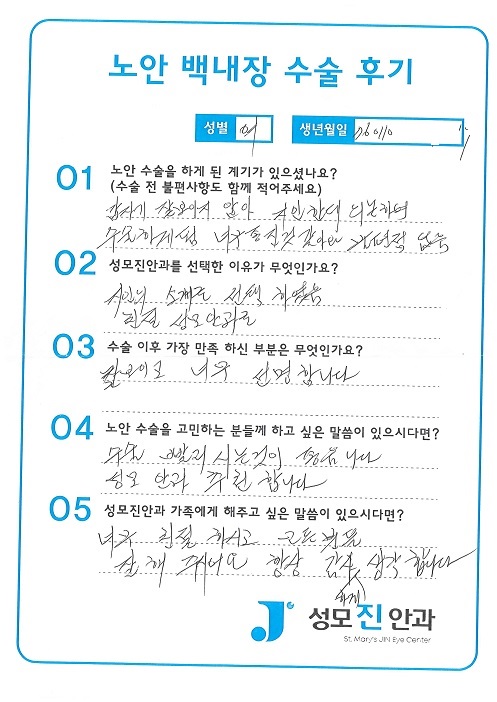 노안 백내장 수술 후기
성별 여 생년월일
01 노안 수술을 하게 된 계기가 있으셨나요?
(수술 전 불편사항도 함께 적어주세요)
갑자기 잘 보이지 않아 지인한테
수술하게 됨 너무
02 성모진안과를 선택한 이유가 무엇인가요?
지인의 소개로 선택 하였음
친절 성모안과로
03 수술 이후 가장 만족 하신 부분은 무엇인가요?
잘보이고 너무 선명합니다
04 노안 수술을 고민하는 분들께 하고 싶은 말씀이 있으시다면?
수술 빨리 시는것이 좋읍니다
성모 안과 추천 합니다
05 성모진안과 가족에게 해주고 싶은 말씀이 있으시다면?
너무 친절 하시고 모든분들
잘 해 주시니요 항상 감사 생각 합니다
하게
성모진안과
St. Mary's JIN Eye Center